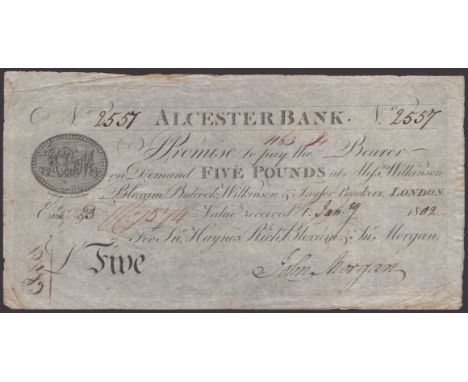 No 2557 ALCESTER BANK. No 2557
I Promise to pay the Bearer
on Demand FIVE POUNDS at Messrs Wilkinson
Bloxam Bulcock, Wilkinson & Taylor Bankers, LONDON
Entd Value received 1 Jany 1802
For Jno Haynes, Richd Bloxam & Jno Morgan.
£ Five
John Morgan